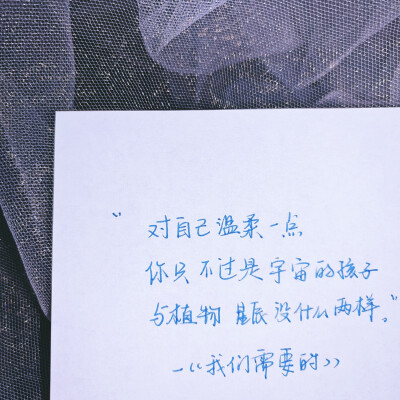 “对自己温柔一点
你只不过是宇宙的孩子
与植物星辰没什么两样。”
—《我们需要的》